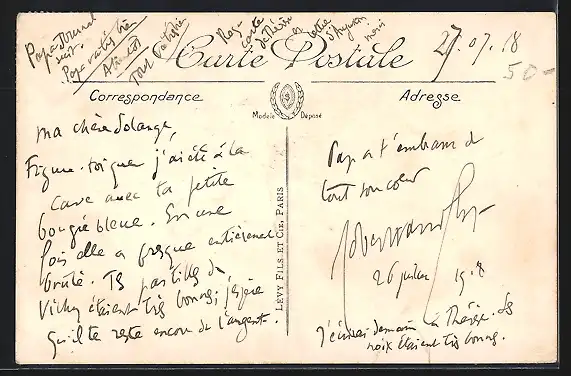 Papa
Papa va très bien
A bientôt
Reçu
carte
de
en
lettre
Carte Postale
27.07.18
50-
Correspondance
Adresse
Modèle Déposé
LÉVY FILS ET CIE, PARIS
ma chère Solange,
Figure-toi que j'ai été à la
cave avec ta petite
bougie bleue. En une
fois elle a presque entièrement
brûlé. Tes pastilles de
Vichy étaient très bonnes; j'espère
qu'il te reste encore de l'argent.
Papa t'embrasse de
tout son coeur
26 juillet 1918
J'écrirai demain à Thérèse. Les
noix étaient très bonnes.